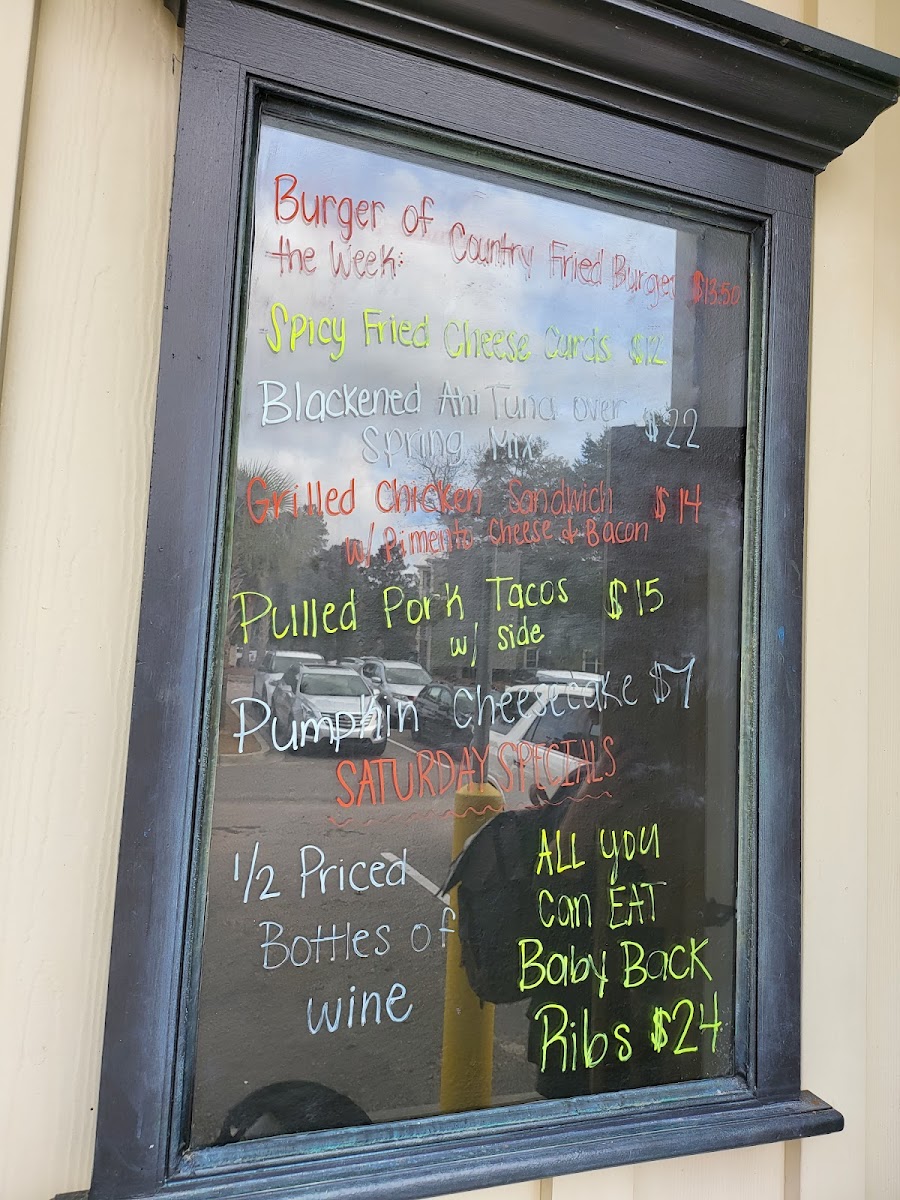 Burger of
the Week: Country Fried Burger $13.50
Spicy Fried Cheese Curds $12
Blackened Ahi Tuna over
Spring Mix $22
Grilled Chicken Sandwich $14
w/ Pimento Cheese & Bacon
Pulled Pork Tacos $15
w/ side
Pumpkin Cheesecake $7
SATURDAY SPECIALS
1/2 Priced
Bottles of
wine
ALL you
Can EAT
Baby Back
Ribs $24